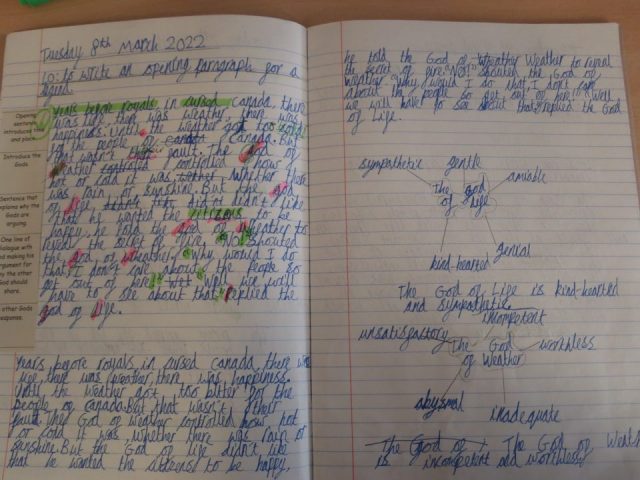 Tuesday 8th March 2022
LO: to write an opening paragraph for a
legend.
Opening sentence introduces and place
Introduce the Gods.
Sentence that explains why the Gods are arguing.
One line of dialogue with making his argument for why the other God should share.
other Gods response.
Years before royals in cursed Canada, there
was life, there was weather, there was
happiness. Until the weather got too cold
for the people of Canada. But
that wasn't their fault. The God of
Weather controled controlled how
hot or cold it was. Whether there
was rain or sunshine. But the god
of life, didn't like
that he wanted the citizens to be
happy, he told the god of weather to
reveal the secret of fire. No! shouted
the God of Weather. Why would I do
that, I don't care about the people so
get out of here! Well we will
have to see about that, replied the
god of life.
Years before royals in cursed Canada, there was
life, there was weather, there was happiness.
Until the weather got too bitter for the
people of Canada. But that wasn't their
fault. The God of weather controlled how hot
or cold it was, whether there was rain or
sunshine. But the God of life didn't like
that he wanted the citizens to be happy.
he told the God of Weather to reveal
the secret of fire. No! shouted the God of
weather. Why would I do that, I don't care
about the people so get out of here! Well
we will have to see about that, replied the God
of Life.
sympathetic gentle amiable
The God of Life
kind-hearted genial
The God of Life is kind-hearted
and sympathetic
incompetent
unsatisfactory worthless
The God of Weather
abysmal inadequate
The God of The God of Weath
is incompetent and worthless